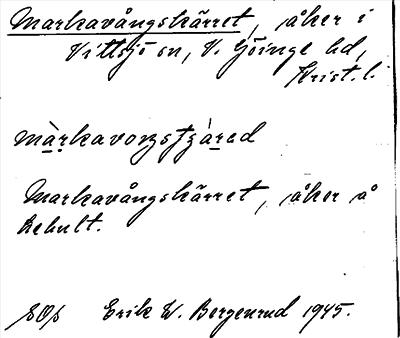 Markavångskärret, åker i
Vittsjö sn, V. Göinge hd,
Krist. l.
Markavångskärret, åker å
Rehult.
Erik W. Bergenrud 1945.